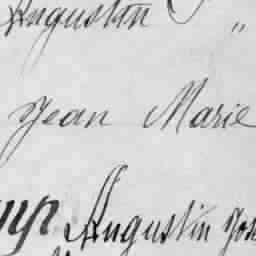 Augustin "
Jean Marie
Augustin Jos